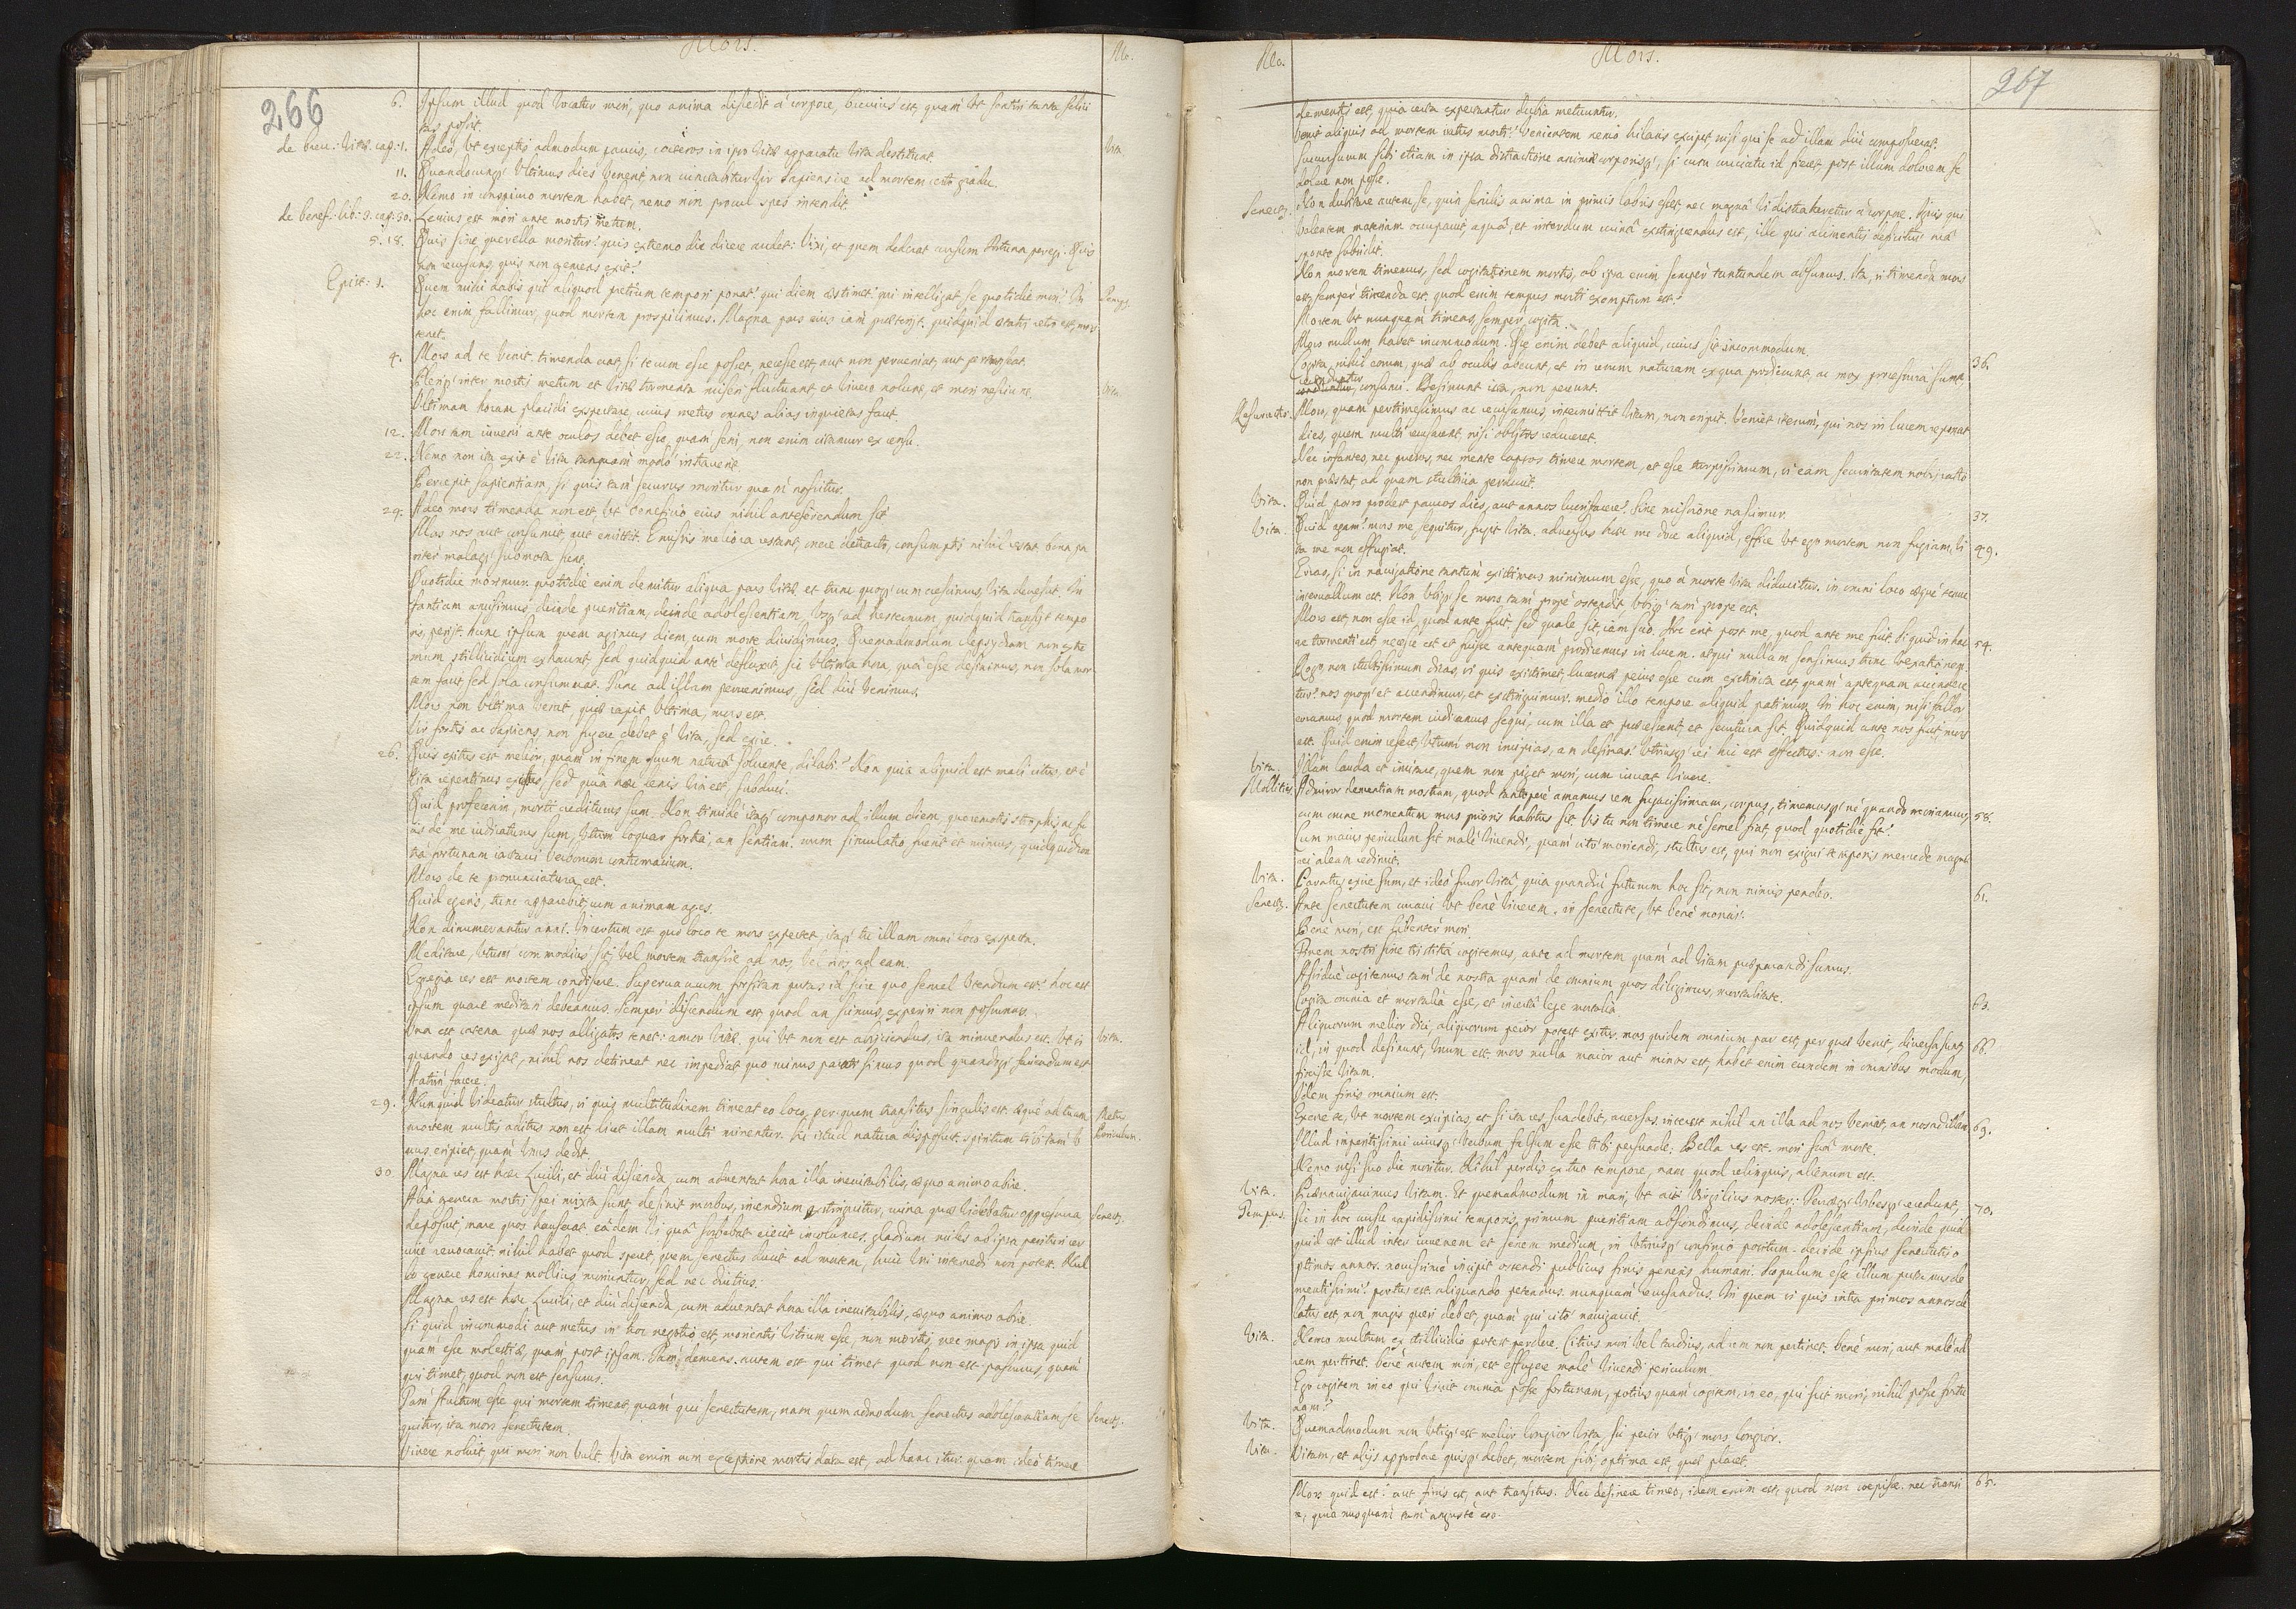 Mors.
Mo.
266
6. Ipsum illud quod vocatur mori, quo anima discedit à corpore, brevius est, quàm ut sentiri tanta veloci
tas possit.
de brev: vitæ cap: 1. Adeò, ut exceptis admodum paucis, cæteros in ipso vitæ apparatu vita destituat. Vita
11. Quandocunq; ultimus dies venerit non cunctabitur vir sapiens ire ad mortem certo gradu.
20. Nemo in conspicuo mortem habet, nemo non procul spes intendit.
de benef: lib: 2. cap: 30. Levius est mori ante mortis metum.
5. 18. Quis sine querella moritur? quis extremo die dicere audet: Vixi, et quem dederat cursum fortuna peregi. Quis
non recusans, quis non gemens exit?
Epist: 1. Quem mihi dabis qui aliquod pretium tempori ponat? qui diem æstimet? qui intelligat, se quotidie mori? In Temp9.
hoc enim fallimur, quod mortem prospicimus. Magna pars eius iam præterijt. quidquid ætatis retro est, mors
tenet.
4. Mors ad te venit. timenda erat, si tecum esse posset, necesse est, aut non perveniat, aut pertranseat.
Pleriq; inter mortis metum et vitæ tormenta miseri fluctuant, et vivere nolunt, et mori nesciunt. Vita.
Ultimam horam placidè exspectare, cuius metus omnes alias inquietas facit.
12. Mors tam iuveni ante oculos debet esse, quàm seni, non enim citamur ex censu.
22. Nemo non ita exit è vita tanquam modò intraverit.
Percepit sapientiam, si quis tam securus moritur quàm nascitur.
24. Adeo mors timenda non est, ut beneficio eius nihil anteferendum sit.
Mors nos aut consumit, aut emittit. Emissis meliora restant, onere detracto, consumptis nihil restat, bona pa
riter malaq; submota sunt.
Quotidie morimur. quotidiè enim demitur aliqua pars vitæ, et tunc quoq; cum crescimus, vita decrescit. In
fantiam amisimus, deinde pueritiam, deinde adolescentiam. Usq; ad hesternum, quidquid transijt tempo
ris, perijt. hunc ipsum quem agimus diem, cum morte dividimus. Quemadmodum clepsydram non extre
mum stillicidium exhaurit, sed quidquid antè defluxit, sic ultima hora, qua esse desinimus, non sola mor
tem facit sed sola consummat. Tunc ad illam pervenimus, sed diu venimus.
Mors non ultima venit, quæ rapit ultima, mors est.
Vir fortis ac sapiens, non fugere debet è vita, sed exire.
26. Quis exitus est melior, quàm in finem suum natura solvente, dilabi? Non quia aliquid est mali ictus, et è
vita repentinus exitus sed quia hæc lenis via est, subduci.
Quid profecerim, morti crediturus sum. Non timidè itaq; componor ad illum diem, quo remotis strophis, ac fu
cis de me iudicaturus sum, utrum loquar fortia, an sentiam. num simulatio fuerit et mimus, quidquid con
tra fortunam iactavi verborum contumacium.
Mors de te pronunciatura est.
Quid egeris, tunc apparebit, cum animam ages.
Non dinumerantur anni. Incertum est quo loco te mors expectet, itaq; tu illam omni loco exspecta.
Meditare, utrum commodius sit, vel mortem transire ad nos, vel nos ad eam.
Egregia res est mortem condiscere. Supervacuum forsitan putas id scire quo semel utendum est? hoc est
ipsum quare meditari debeamus. Semper discendum est, quod an sciamus, experiri non possumus.
Una est catena quæ nos alligatos tenet: amor vitæ, qui ut non est abijciendus, ita minuendus est. Ut si Vita.
quando res exigat, nihil nos detineat nec impediat quo minus parati simus quod quandoq; faciendum est
statim facere.
29. Nunquid videatur stultus, si quis multitudinem timeat eo loco, per quem transitus singulis est. æquè ad tuam Metus
mortem multis aditus non est licet illam multi minentur. Sic istud natura disposuit. spiritum tibi tam u Periculum.
nus eripiet, quàm unus dedit.
30. Magna res est hæc Lucili, et diu discenda, cum adventat hora illa inevitabilis, æquo animo abire.
Alia genera mortis spei mixta sunt. desinit morbus, incendium extinguitur, ruina quæ videbatur oppressura Senect9.
deposuit, mare quos hauserat eadem vi qua sorbebat eiecit incolumes. gladium miles ab ipsa perituri cer
vice revocavit. nihil habet quod speret, quem senectus ducit ad mortem, huic uni intercedi non potest. Nul
lo genere homines mollius moriuntur, sed nec diutius.
Magna res est hæc Lucili, et diu discenda, cum adventat hora illa inevitabilis, æquo animo abire.
Si quid incommodi aut metus in hoc negotio est, morientis vitium esse, non mortis, nec magis in ipsa quid
quam esse molestiæ, quàm post ipsam. Tam demens autem est qui timet quod non est passurus, quàm
qui timet, quod non est sensurus.
Tam stultum esse qui mortem timeat, quàm qui senectutem, nam quemadmodum senectus adolescentiam se Senect9.
quitur, ita mors senectutem.
Vivere noluit, qui mori non vult. Vita enim cum exceptione mortis data est, ad hanc itur. quam ideò timere
Mo.
Mors.
267
dementis est, quia certa expectantur dubia metuuntur.
Venit aliquis ad mortem iratus morti? Venientem nemo hilaris excipit, nisi qui se ad illam diu composuerat.
Succursurum sibi etiam in ipsa distractione animæ corporisq;, si cum cruciatu id fieret, post illum dolorem se
dolere non posse.
Senect9. Non dubitare autem se, quin senilis anima in primis labris esset, nec magna vi distraheretur à corpore. Ignis qui
valentem materiam occupavit, aquâ, et interdum ruinâ extinguendus est, ille qui alimentis deficitur suâ
sponte subsidit.
Non mortem timemus, sed cogitationem mortis, ab ipsa enim semper tantundem absumus. Ita, si timenda mors
est, semper timenda est, quod enim tempus morti exemptum est?
Mortem ut nunquàm timeas, semper cogita.
Mors nullum habet incommodum. Esse enim debet aliquid, cuius sit incommodum.
Certa, nihil eorum, quæ ab oculis abeunt, et in rerum naturam ex qua prodierunt, ac mox processura sunt 36.
reconduntur, consumi. Desinunt ista, non pereunt.
Resurrectio. Mors, quam pertimescimus ac recusamus, intermittit vitam, non eripit. Veniet iterum, qui nos in lucem reponat
dies, quem multi recusarent, nisi oblitos reduceret.
Nec infantes, nec pueros, nec mente lapsos timere mortem, et esse turpissimum, si eam securitatem nobis ratio
non præstat, ad quam stultitia perducit.
Vita. Quid porro prodest paucos dies, aut annos lucrifacere? Sine missione nascimur. 37.
Vita Quid agam? mors me sequitur, fugit vita. adversus hæc me doce aliquid, effice ut ego mortem non fugiam, vi 49.
ta me non effugiat.
Erras, si in navigatione tantùm existimas minimum esse, quo à morte vita diducitur. in omni loco æquè tenue
intervallum est. Non ubiq; se mors tam propè ostendit, ubiq; tam propè est.
Mors est, non esse id, quod ante fuit, sed quale sit, iam scio. Hoc erit post me, quod ante me fuit. Si quid in hac
re tormenti est, necesse est et fuisse antequam prodiremus in lucem. atqui nullam sensimus tunc vexationem 54.
Rogo non stultissimum dicas, si quis existimet, lucernæ peius esse cum extincta est, quàm antequam accendere
tur? nos quoq; et accendimur, et extinguimur. medio illo tempore aliquid patimur. In hoc enim, nisi fallor
erramus, quod mortem iudicamus sequi, cum illa et præcesserit, et secutura sit. Quidquid ante nos fuit, mors
est. Quid enim refert, utrum non incipias, an desinas? utriusq; rei hic est effectus: non esse.
Vita. Illum lauda et imitare, quem non piget mori, cum iuvat vivere.
Mollities. Admiror dementiam nostram, quod tantoperè amamus rem fugacissimam, corpus, timemusq; ne quando moriamur,
cum omne momentum mors prioris habitus sit. Vis tu non timere ne semel fiat, quod quotidie fit? 58.
Cum maius periculum sit malè vivendi, quàm citò moriendi, stultus est, qui non exigui temporis mercede magnæ
rei aleam redimit.
Vita. Paratus exire sum, et ideò fruor vitâ, quia quandiu futurum hoc sit, non nimis pendeo. 61.
Senect9. Ante senectutem curavi ut benè viverem. in senectute, ut benè moriar.
Benè mori, est libenter mori.
Finem nostri sine tristitia cogitemus, ante ad mortem quàm ad vitam præparandi sumus.
Assiduè cogitemus tam de nostra quàm de omnium quos diligimus, mortalitate.
Cogita omnia et mortalia esse, et incertâ lege mortalia. 63.
Aliquorum melior dici, aliquorum peior potest exitus. mors quidem omnium par est. per quæ venit, diversa sunt,
id, in quod desinunt, unum est. mors nulla maior aut minor est, habet enim eundem in omnibus modum, 66.
finisse vitam.
Idem finis omnium est.
Exerce te, ut mortem excipias, et si ita res suadebit, accersas. interest nihil an illa ad nos veniat, an nos ad illam. 69.
Illud imperitissimi cuiusq; verbum falsum esse tibi persuade: Bella res est. mori suâ morte.
Nemo nisi suo die moritur. Nihil perdis ex tuo tempore, nam quod relinquis, alienum est.
Vita. Prænavigavimus vitam. Et quemadmodum in mari, ut ait Virgilius noster: Terræq; urbesq; recedunt, 70.
Tempus. sic in hoc cursu rapidissimi temporis, primum pueritiam abscondimus, deinde adolescentiam, deinde quid
quid est illud inter iuvenem et senem medium, in utriusq; confinio positum. deinde ipsius senectutis o
ptimos annos. novissimè incipit ostendi publicus finis generis humani. Scopulum esse illum putamus de
mentissimi? portus est, aliquando petendus. nunquam recusandus. In quem si quis intra primos annos de
latus est, non magis queri debet, quàm qui citò navigavit.
Vita. Nemo multum ex stillicidio potest perdere. Citius mori vel tardius, ad rem non pertinet. benè mori, aut malè ad
rem pertinet. benè autem mori, est effugere malè vivendi periculum
Ego cogitem in eo qui vivit omnia posse fortunam, potius quàm cogitem, in eo, qui scit mori, nihil posse fortu
nam?
Vita. Quemadmodum non utiq; est melior longior vita, sic peior utiq; mors longior.
Vita. Vitam, et alijs approbare quisq; debet, mortem sibi. optima est, quæ placet.
Mors quid est? aut finis est, aut transitus. Nec desinere timeo, idem enim est, quod non cœpisse. nec transi 65.
re, quia nusquam tam angustè ero.